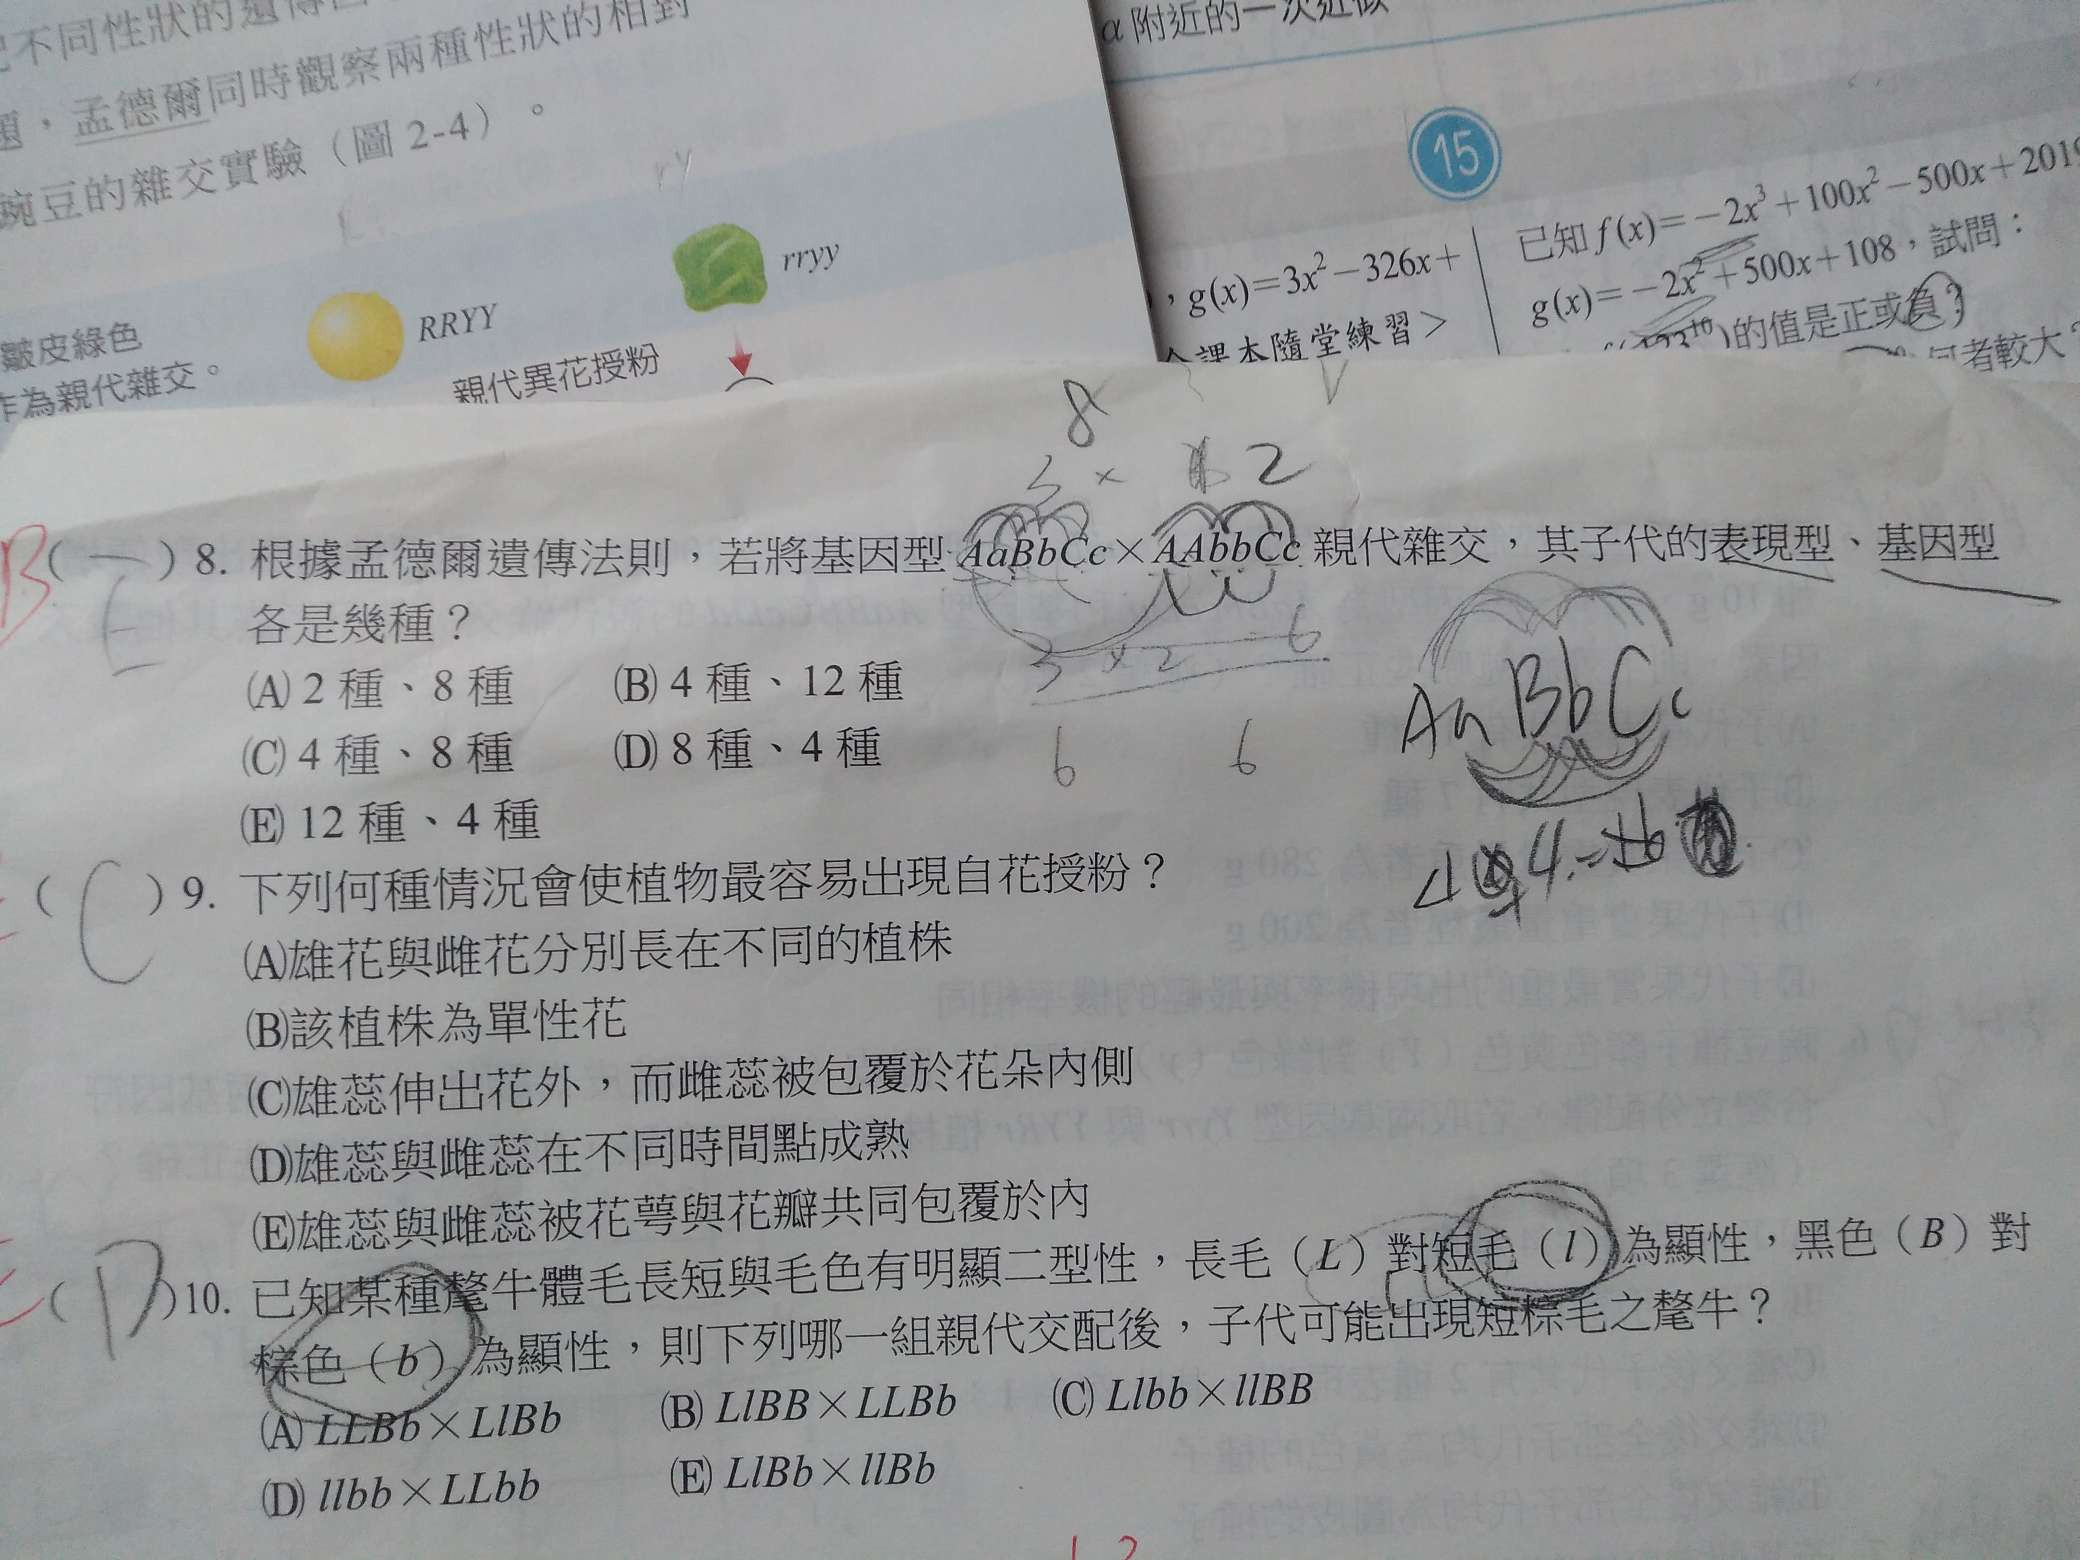 不同性狀的遺傳
，孟德爾同時觀察兩種性狀的相對
豌豆的雜交實驗（圖 2-4）。
rY
RRYY
rryy
皺皮綠色
作為親代雜交。
親代異花授粉
α 附近的一次近似
15
，g(x)=3x²-326x+
課本隨堂練習>
已知 f(x)=-2x³+100x²-500x+2019
g(x)=-2x²+500x+108，試問：
的值是正或負？
何者較大？
8
3 × 2
B
( 一 ) 8. 根據孟德爾遺傳法則，若將基因型 AaBbCc×AAbbCc 親代雜交，其子代的表現型、基因型
各是幾種？
E
(A) 2 種、8 種 (B) 4 種、12 種
(C) 4 種、8 種 (D) 8 種、4 種
(E) 12 種、4 種
3 × 2 = 6
6 6
AaBbCc
( C ) 9. 下列何種情況會使植物最容易出現自花授粉？
(A)雄花與雌花分別長在不同的植株
(B)該植株為單性花
(C)雄蕊伸出花外，而雌蕊被包覆於花朵內側
(D)雄蕊與雌蕊在不同時間點成熟
(E)雄蕊與雌蕊被花萼與花瓣共同包覆於內
( D )10. 已知某種氂牛體毛長短與毛色有明顯二型性，長毛（L）對短毛（l）為顯性，黑色（B）對
棕色（b）為顯性，則下列哪一組親代交配後，子代可能出現短棕毛之氂牛？
(A) LLBb×LlBb (B) LlBB×LLBb (C) Llbb×llBB
(D) llbb×LLbb (E) LlBb×llBb